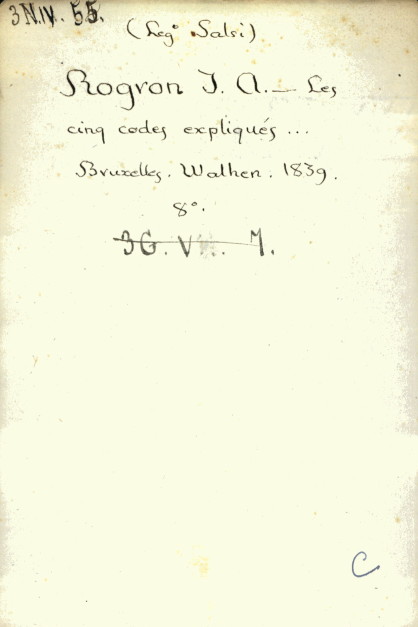 3 N.IV. 55.
(Leg° Salsi)
Rogron J. A. — Les
cinq codes expliqués ...
Bruxelles. Wathen. 1839.
8°.
3G. V
C